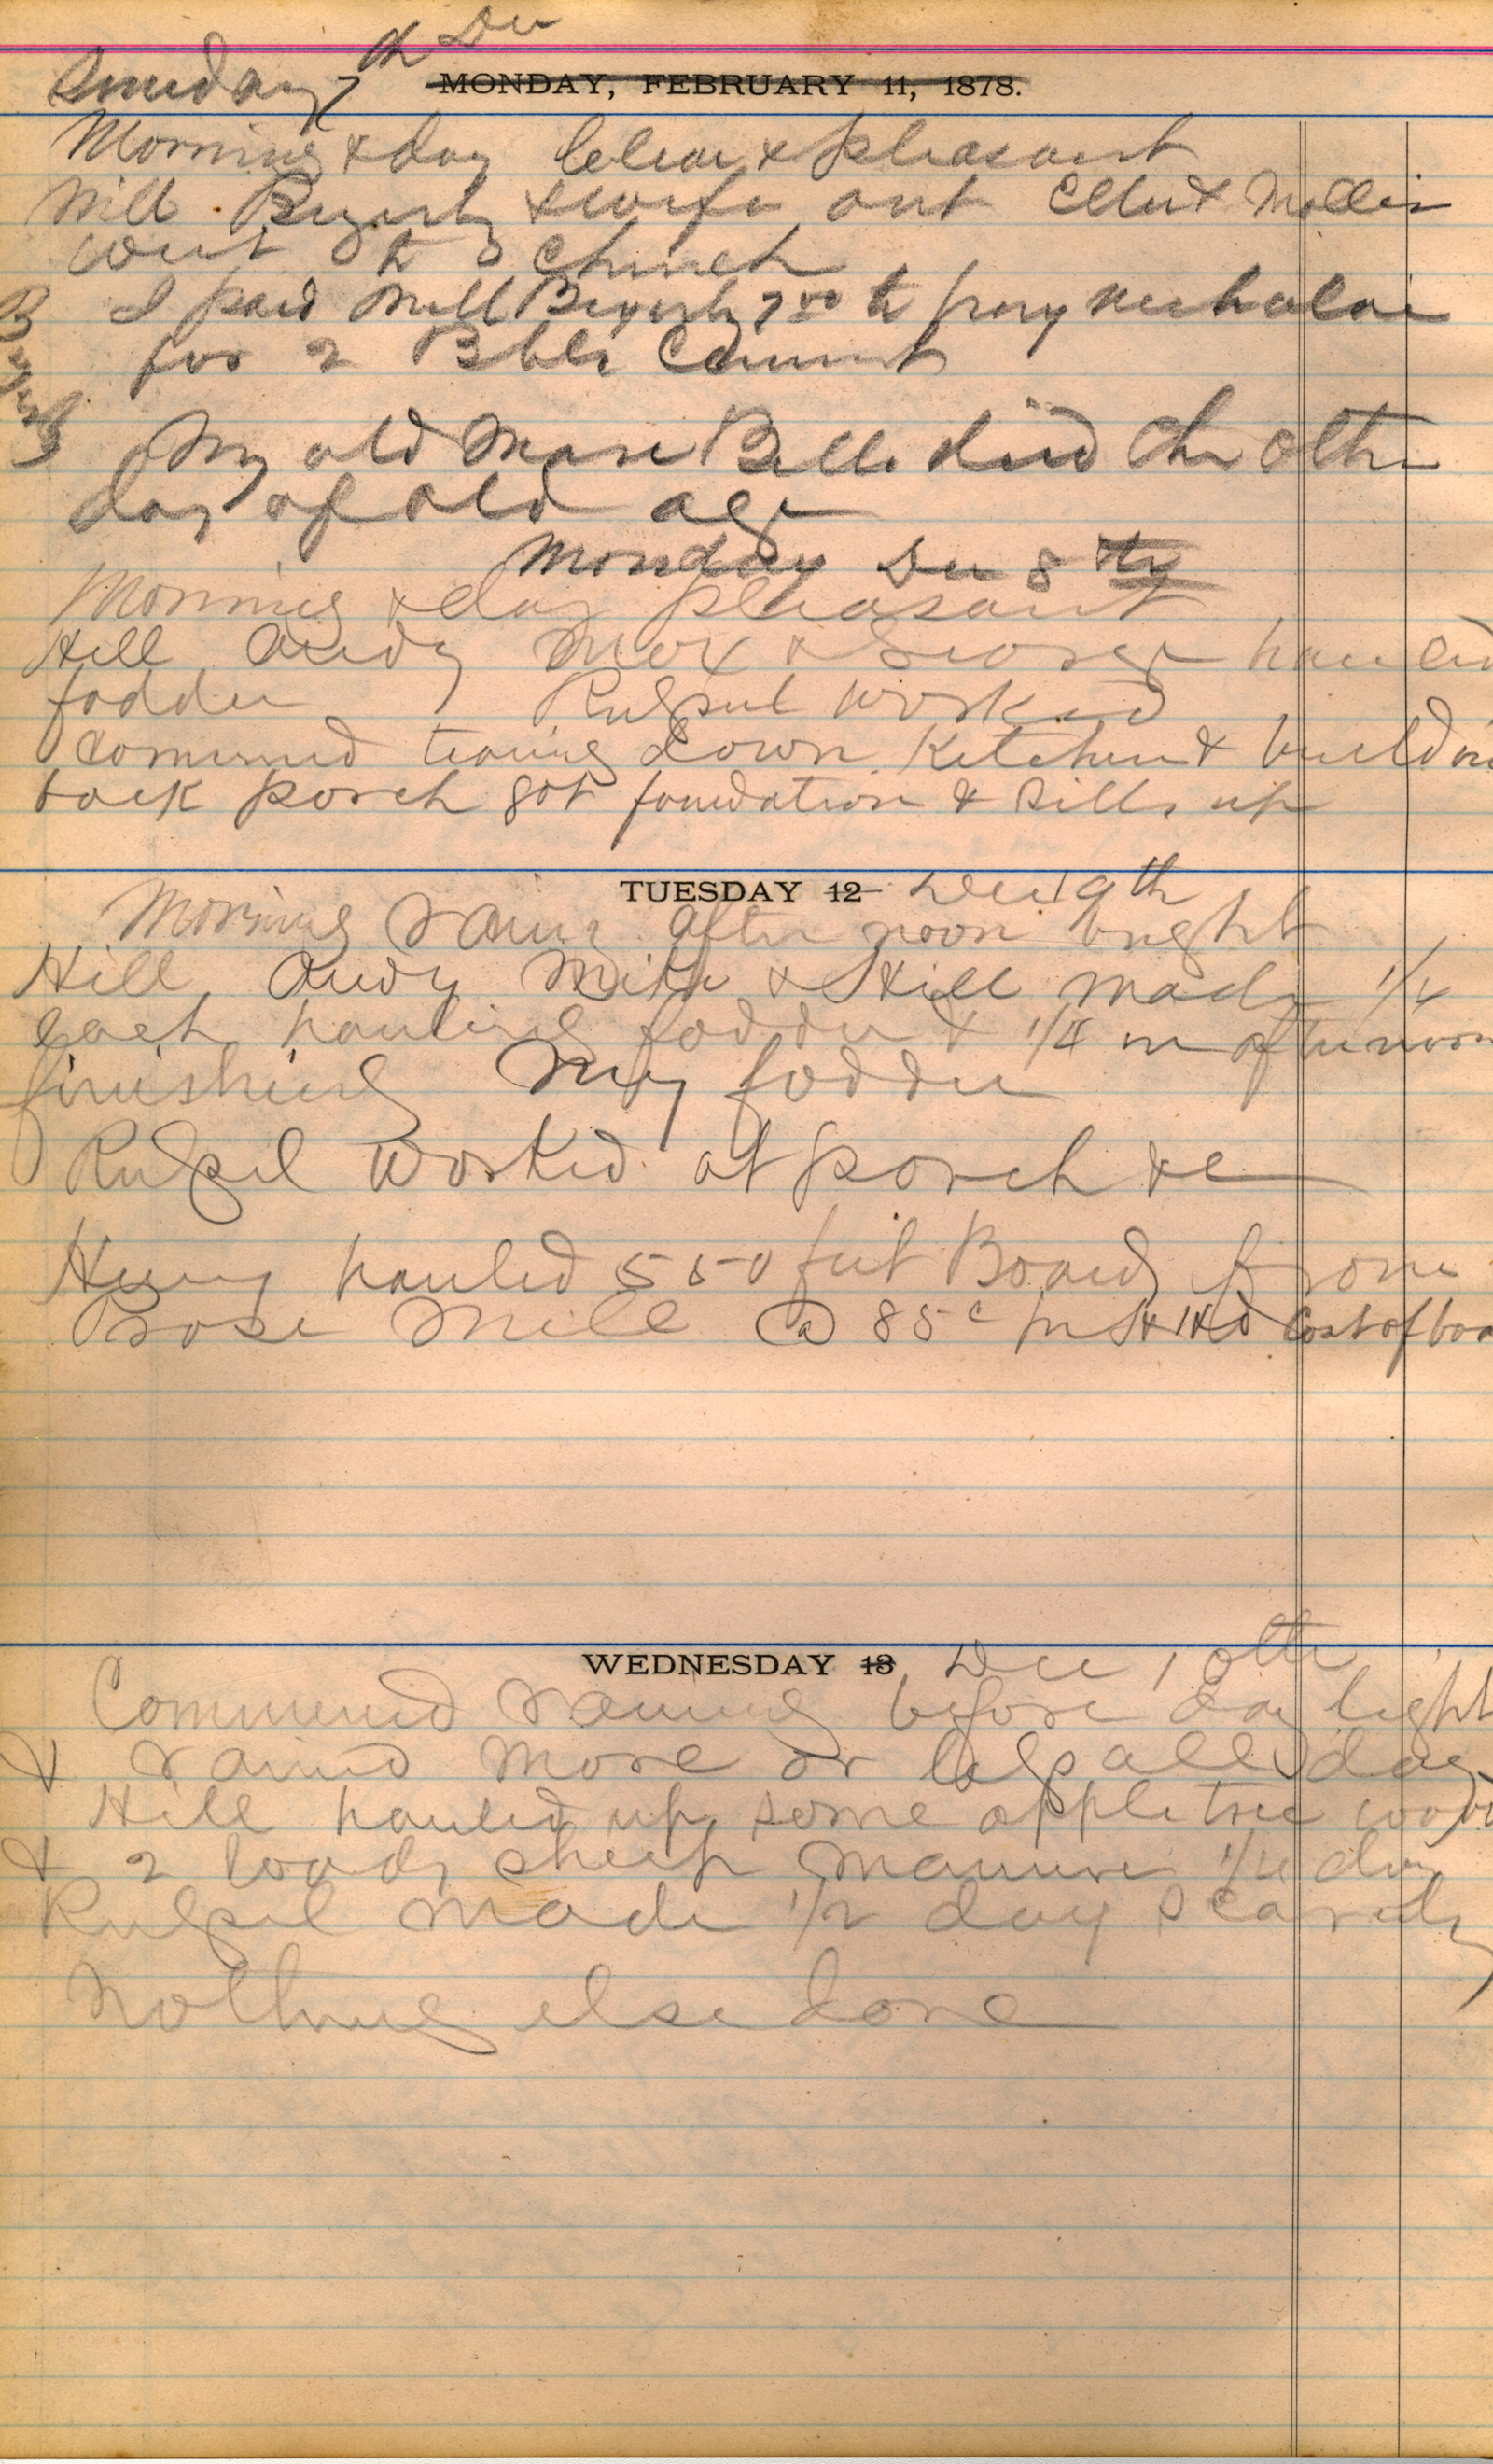 Sunday 7th Dec
MONDAY, FEBRUARY 11, 1878.
Morning & day Clear & pleasant
Will Byerly & wife out Ella & Mollie
went to Church
I paid Will Byerly 7 00 to pay
for 2 Bbls Cement
Byerly
My old Mare Belle died the other
day of old age
Monday Dec 8th
Morning & day pleasant
Hill Andy Mox & George hauled
fodder Russel worked
Commencd tearing down Kitchen & building
back porch got foundation & sills up
TUESDAY 12 Dec 9th
Morning rainy after noon bright
Hill Andy & Hill made 1/4
each hauling fodder & 1/4 in afternoon
finishing my fodder
Russel worked at porch &c
Henry hauled 550 feet Boards from
Rose Mill @ 85c per Cost of boa
WEDNESDAY 13 Dec 10th
Commencd raining before day light
& rained more or less all day
Hill hauled up some apple tree wood
& 2 loads sheep manure 1/4 day
Russel made 1/2 day scarcely
Nothing else done